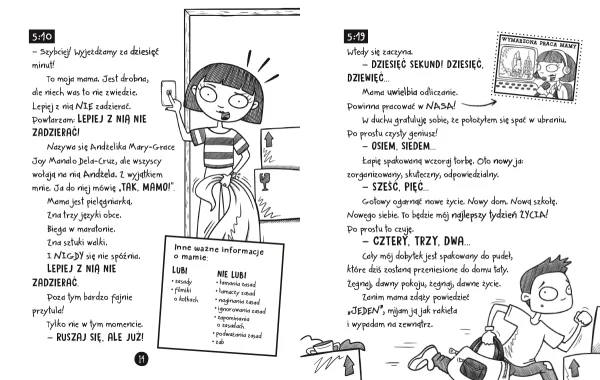 5:10
– Szybciej! Wyjeżdżamy za dziesięć
minut!
To moja mama. Jest drobna,
ale niech was to nie zwiedzie.
Lepiej z nią NIE zadzierać.
Powtarzam: LEPIEJ Z NIĄ NIE
ZADZIERAĆ!
Nazywa się Andżelika Mary-Grace
Joy Manalo Dela-Cruz, ale wszyscy
wołają na nią Andżela. Z wyjątkiem
mnie. Ja do niej mówię „TAK, MAMO!”.
Mama jest pielęgniarką.
Zna trzy języki obce.
Biega w maratonie.
Zna sztuki walki.
I NIGDY się nie spóźnia.
LEPIEJ Z NIĄ NIE
ZADZIERAĆ.
Poza tym bardzo fajnie
przytula!
Tylko nie w tym momencie.
– RUSZAJ SIĘ, ALE JUŻ!
Inne ważne informacje
o mamie:
LUBI
• zasady
• filmiki
o kotkach
NIE LUBI
• łamania zasad
• łamaczy zasad
• naginania zasad
• ignorowania zasad
• zapominania
o zasadach
• podważania zasad
• żab
14
5:19
Wtedy się zaczyna.
– DZIESIĘĆ SEKUND! DZIESIĘĆ,
DZIEWIĘĆ...
Mama uwielbia odliczanie.
Powinna pracować w NASA!
W duchu gratuluję sobie, że położyłem się spać w ubraniu.
Po prostu czysty geniusz!
– OSIEM, SIEDEM...
Łapię spakowaną wczoraj torbę. Oto nowy ja:
zorganizowany, skuteczny, odpowiedzialny.
– SZEŚĆ, PIĘĆ...
Gotowy ogarnąć nowe życie. Nowy dom. Nową szkołę.
Nowego siebie. To będzie mój najlepszy tydzień ŻYCIA!
Po prostu to czuję.
– CZTERY, TRZY, DWA...
Cały mój dobytek jest spakowany do pudeł,
które dziś zostaną przeniesione do domu taty.
Żegnaj, dawny pokoju, żegnaj, dawne życie.
Zanim mama zdąży powiedzieć
„JEDEN”, mijam ją jak rakieta
i wypadam na zewnątrz.
WYMARZONA PRACA MAMY